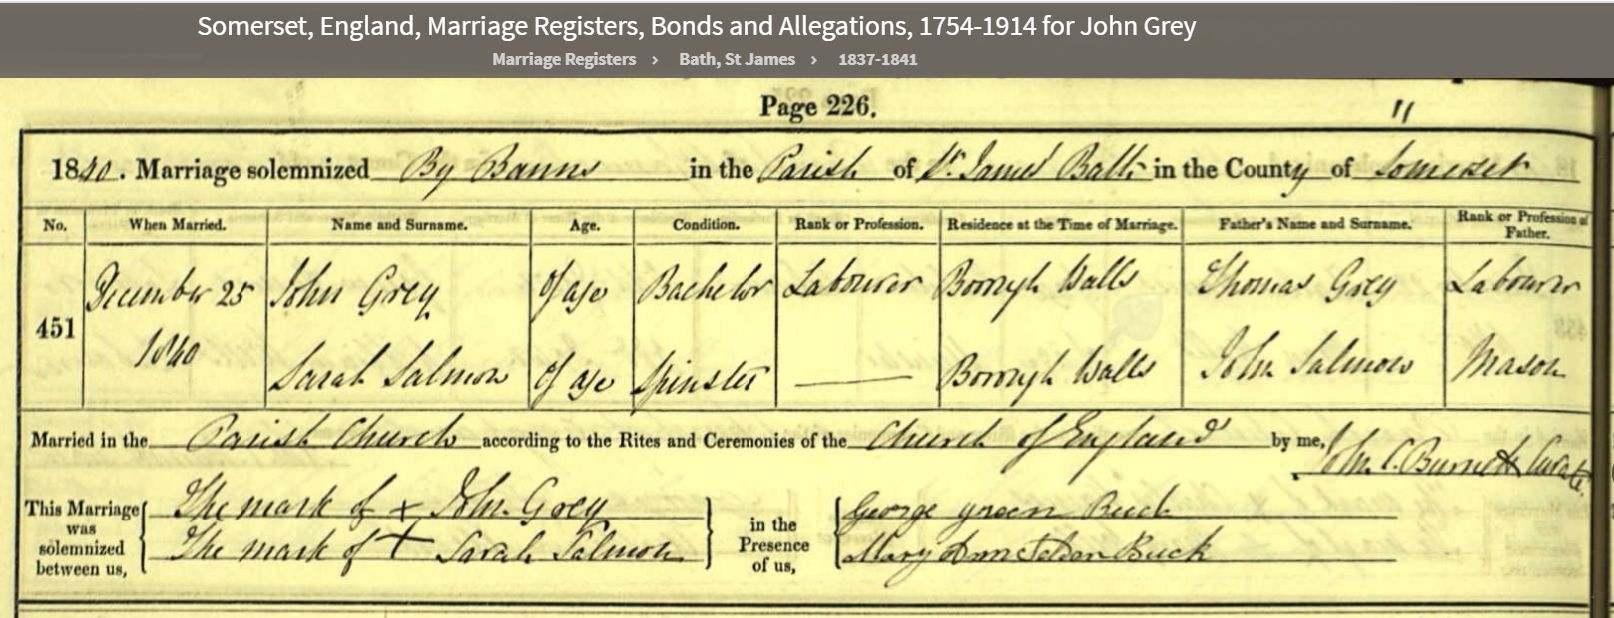 Somerset, England, Marriage Registers, Bonds and Allegations, 1754-1914 for John Grey
Marriage Registers › Bath, St James › 1837-1841
Page 226.
1840. Marriage solemnized By Banns in the Parish of St. James Bath in the County of Somerset
No. When Married. Name and Surname. Age. Condition. Rank or Profession. Residence at the Time of Marriage. Father's Name and Surname. Rank or Profession of Father.
451 December 25 John Grey Of age Bachelor Labourer Borough Walls Thomas Grey Labourer
1840 Sarah Salmon Of age Spinster Borough Walls John Salmon Mason
Married in the Parish Church according to the Rites and Ceremonies of the Church of England by me, John C. Burnett Curate.
This Marriage was solemnized between us, The mark of + John Grey in the Presence of us, George green Buck
The mark of + Sarah Salmon Mary Ann Buck